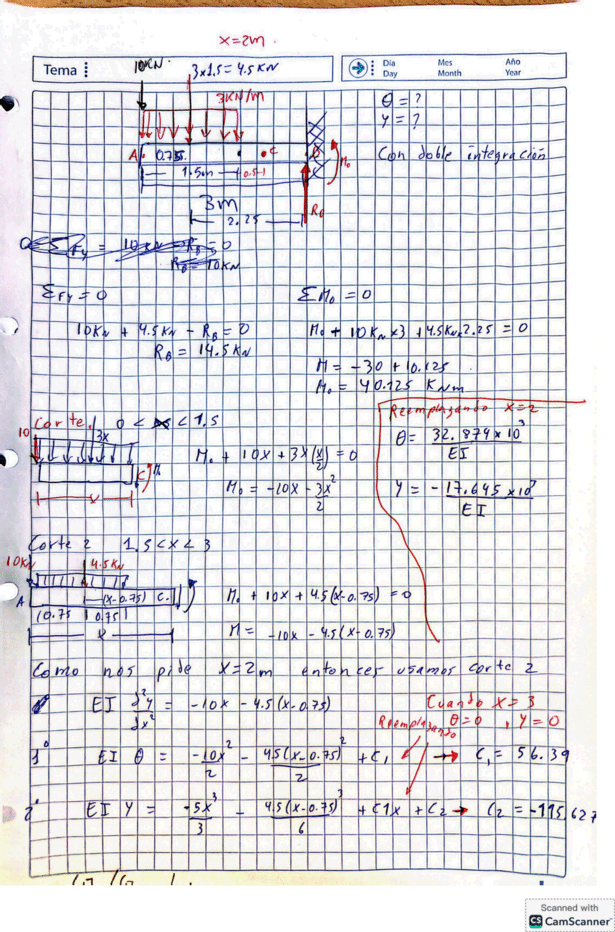 x=2m
Tema
Día
Day
Mes
Month
Año
Year
10KN
3x1.5=4.5KN
3KN/m
θ = ?
y = ?
Con doble integración
A
0.75
C
B
M₀
1.5m
0.5
3m
2.25
R_B
ΣFy = 0
ΣM₀ = 0
10KN + 4.5KN - R_B = 0
R_B = 14.5KN
M₀ + 10KN×3 + 4.5KN×2.25 = 0
M = -30 + 10.125
M₀ = 40.125 KNm
Corte 1 0 < x < 1.5
10
3x
M₀ + 10x + 3x(x/2) = 0
M₀ = -10x - 3x²/2
x
Reemplazando x=2
θ = 32.874×10³/EI
Y = -17.645×10³/EI
Corte 2 1.5<x<3
10KN
4.5KN
A
(x-0.75)
C
0.75
0.75
x
M₀ + 10x + 4.5(x-0.75) = 0
M = -10x - 4.5(x-0.75)
Como nos pide x=2m entonces usamos corte 2
EI d²y/dx² = -10x - 4.5(x-0.75)
Cuando x=3
Reemplazando θ=0, y=0
1° EI θ = -10x²/2 - 4.5(x-0.75)²/2 + C₁ → C₁ = 56.39
2° EI Y = -5x³/3 - 4.5(x-0.75)³/6 + C1x + C₂ → C₂ = -115.627
Scanned with
CS CamScanner